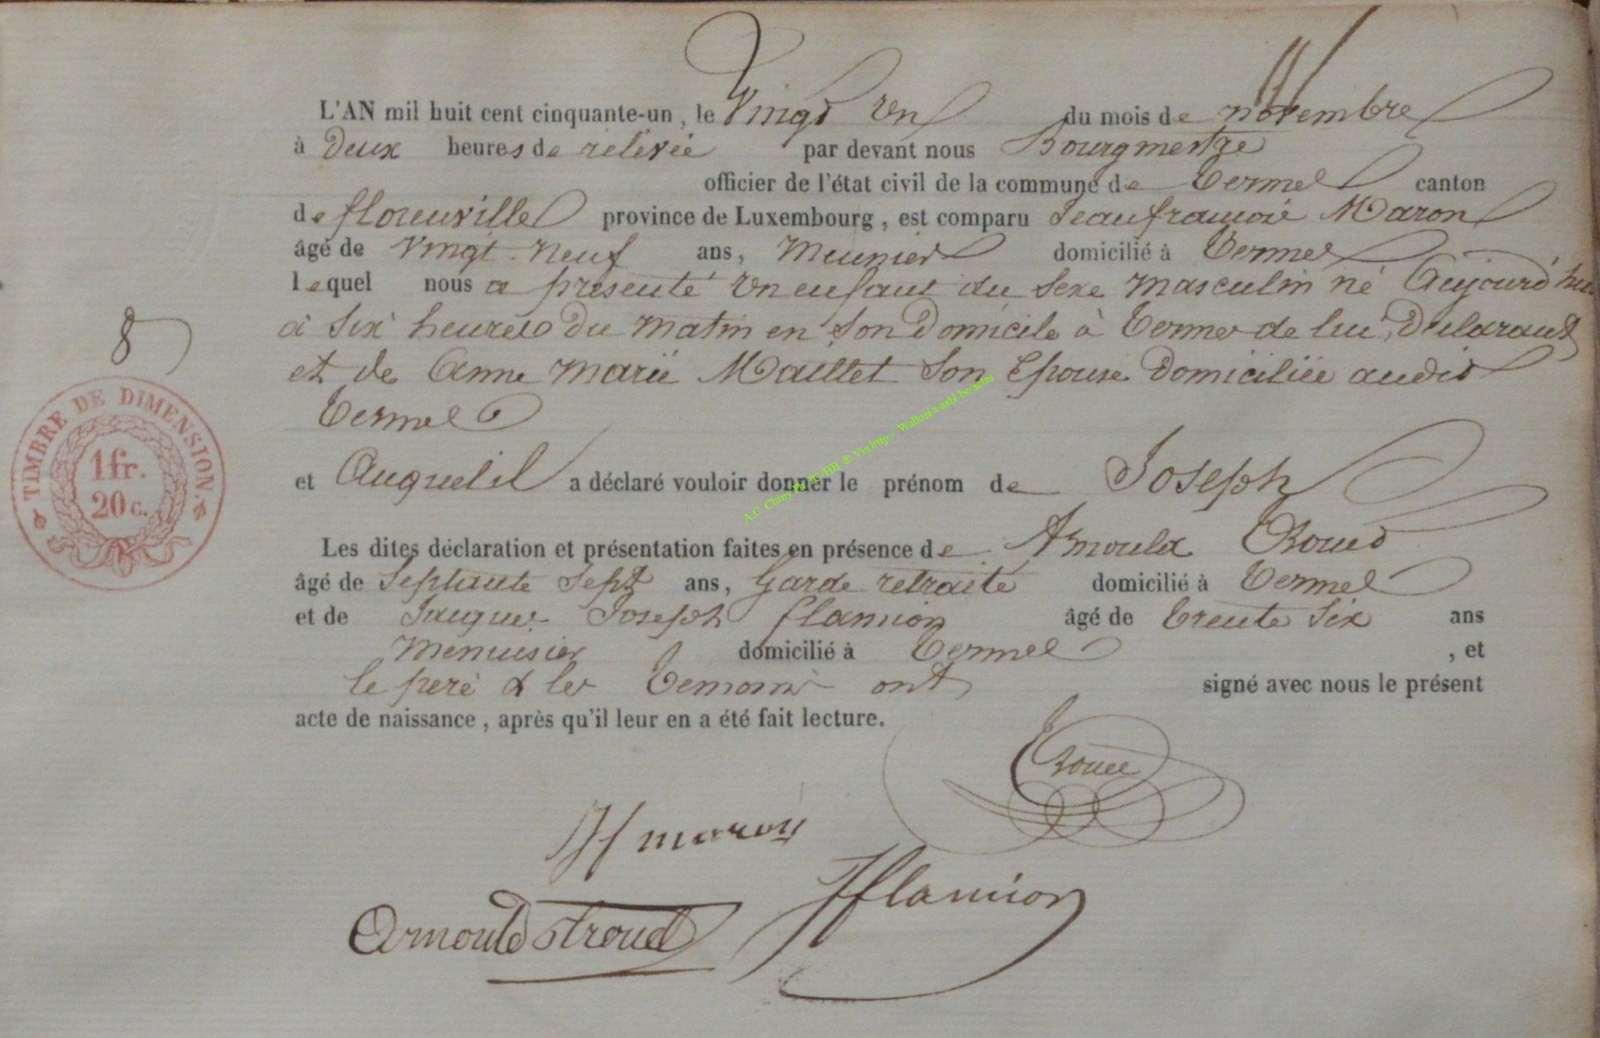 L'AN mil huit cent cinquante-un, le Vingt Un du mois de novembre
à Deux heures de relevée par devant nous Bourgmestre
officier de l'état civil de la commune de Termes canton
de florenville province de Luxembourg, est comparu Jean françois Maron
âgé de Vingt neuf ans, Meunier domicilié à Termes
lequel nous a présenté un enfant du sexe masculin né Aujourd'hui
à six heures du matin en son Domicile à Termes de lui, Déclarant
et de Anne Marie Maillet son Epouse Domiciliée audit
Termes
et Auquel il a déclaré vouloir donner le prénom de Joseph
Les dites déclaration et présentation faites en présence de Arnould
âgé de Septante Sept ans, Garde retraité domicilié à Termes
et de Jacques Joseph flamion âgé de trente Six ans
Menuisier domicilié à Termes, et
le père & les Temoins ont signé avec nous le présent
acte de naissance, après qu'il leur en a été fait lecture.
8
TIMBRE DE DIMENSION.
1fr.
20 c.
JF maron
JJflamion
Arnould